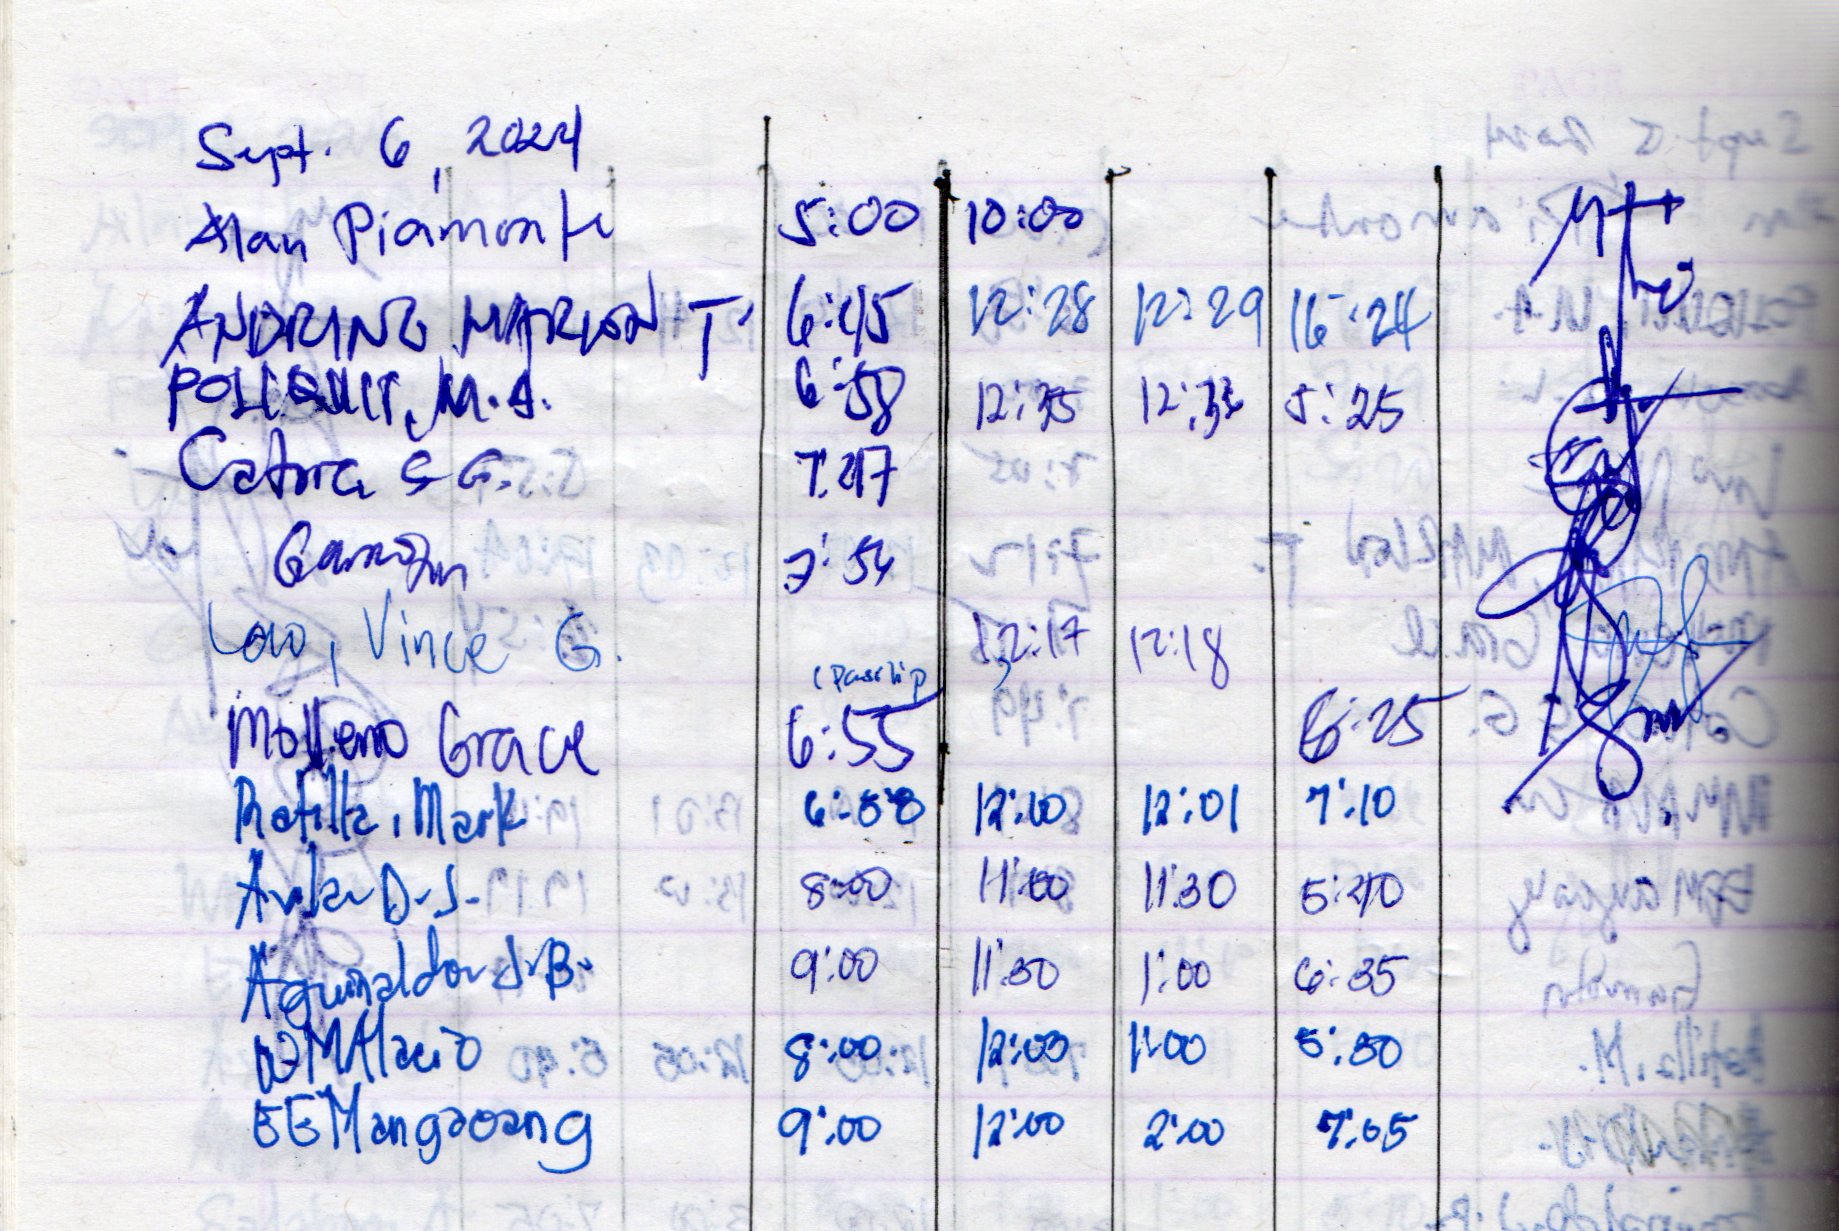 Sept. 6, 2024
Alan Piamonte 5:00 10:00
ANDRINO, MARLON T. 6:45 12:28 12:29 16:24
POLIQUIT, M.A. 6:58 12:35 12:32 5:25
Catoria S G. 7:47
7:54
Lao, Vince G. 12:17 12:18
(pass slip
Molleno Grace 6:55 6:25
Ratilla, Mark 6:58 12:00 12:01 7:10
D.S. 8:00 11:00 11:30 5:40
Aguinaldo J.B. 9:00 11:30 1:00 6:35
8:00 12:00 1:00 5:30
EEMangaoang 9:00 12:00 2:00 7:05